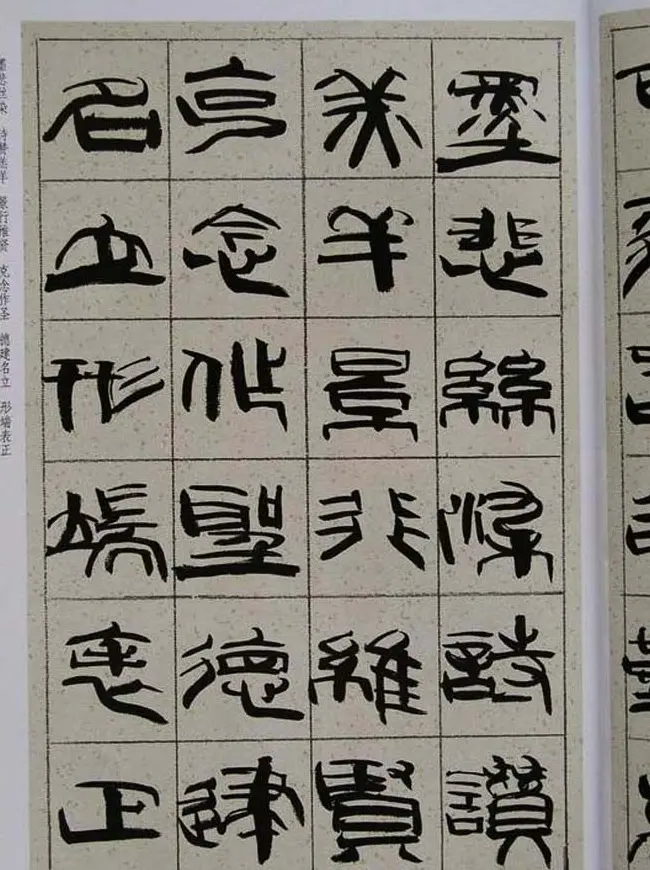 墨悲絲染詩讚
羔羊景行維賢
克念作聖德建
名立形端表正
墨悲丝染 诗赞羔羊 景行维贤 克念作圣 德建名立 形端表正